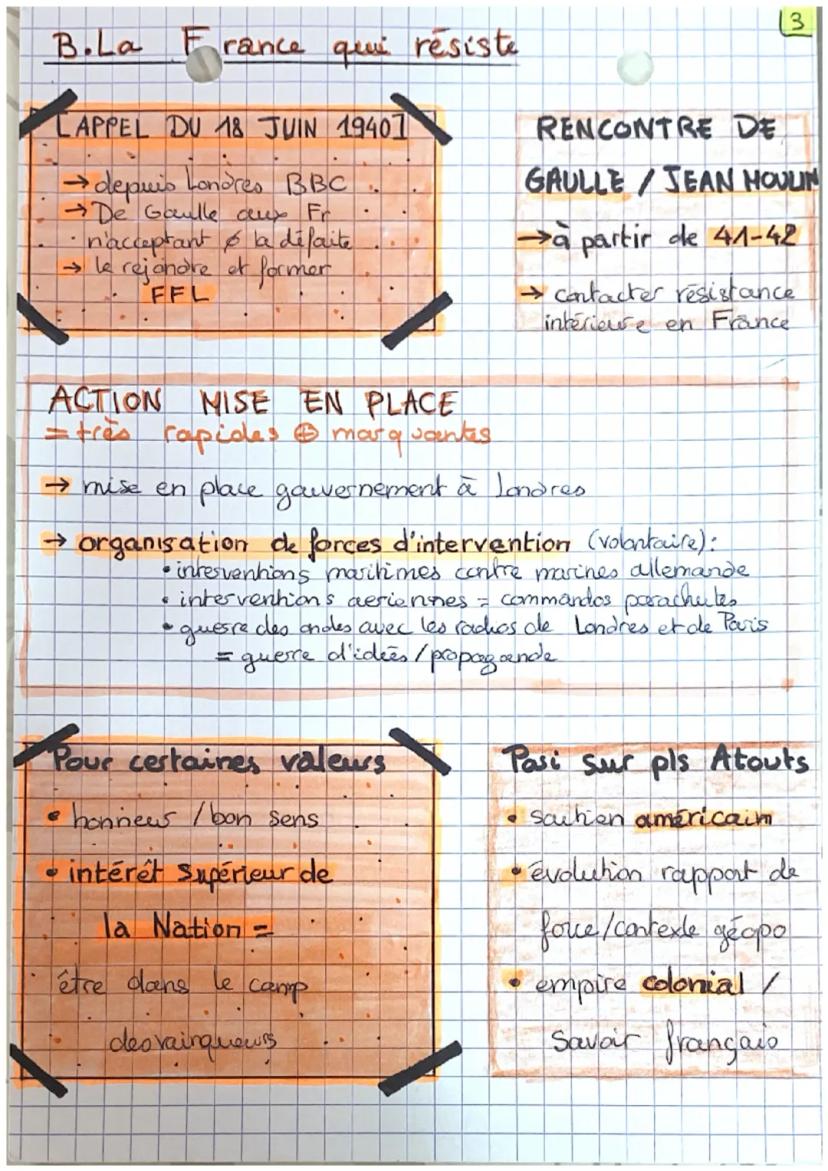 3
B. La France qui résiste
[APPEL DU 18 JUIN 1940]
→ depuis Londres BBC
→ De Gaulle aux Fr
n'acceptant ø la défaite
→ le rejoindre et former
FFL
RENCONTRE DE
GAULLE / JEAN MOULIN
→ à partir de 41-42
→ contacter résistance
intérieure en France
ACTION MISE EN PLACE
= très rapides ⊕ marquantes
→ mise en place gouvernement à Londres
→ organisation de forces d'intervention (volontaire):
• interventions maritimes contre marines allemande
• interventions aeriennes = commandos parachutes
• guerre des ondes avec les radios de Londres et de Paris
= guerre d'idées / propagande
Pour certaines valeurs
• honneur / bon sens
• intérêt supérieur de
la Nation =
être dans le camp
des vainqueurs
Pasi sur pls Atouts
• soutien américain
• évolution rapport de
force/contexte géopo
• empire colonial /
savoir français